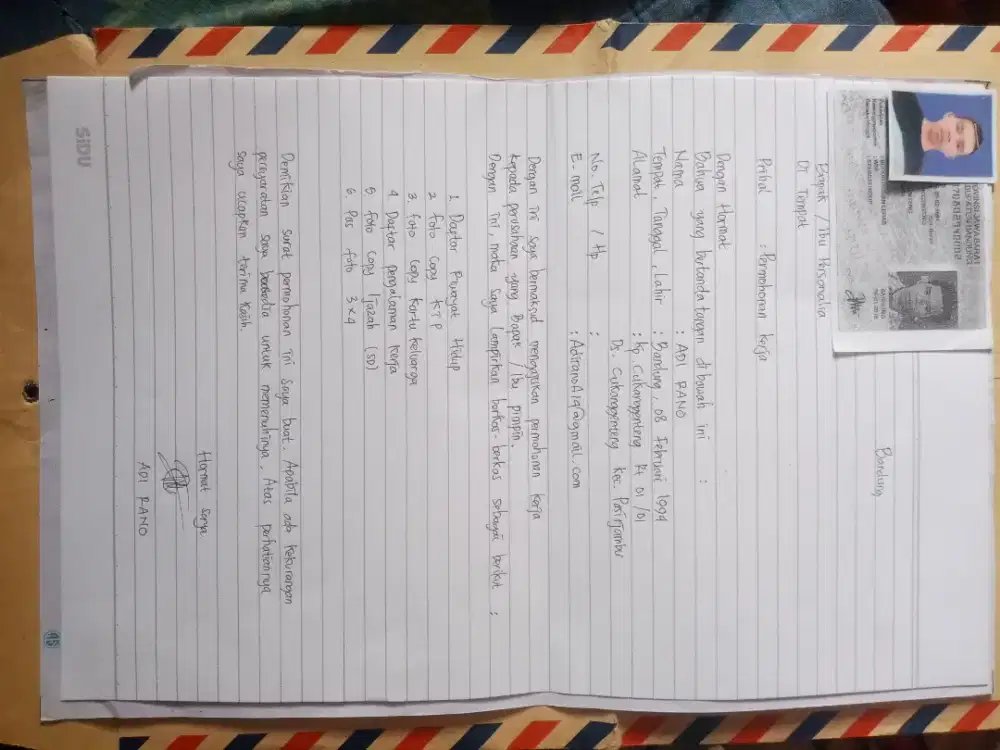 Bandung
Bapak / Ibu Personalia
Di Tempat
Prihal : Permohonan kerja
Dengan Hormat
Bahwa yang bertanda tangan di bawah ini :
Nama : ADI RANO
Tempat, Tanggal, Lahir : Bandung, 08 Februari 1994
ALamat : Kp. Cukanggenteng Rt 01/01
Ds. Cukanggenteng Kec. Pasirjambu
No. Telp / Hp :
E. mail : AdiranoA19@gmail.com
Dengan ini saya bermaksud mengajukan permohonan kerja
kepada perusahaan yang Bapak / Ibu pimpin.
Dengan ini, maka saya Lampirkan berkas-berkas sebagai berikut :
1. Daftar Riwayat Hidup
2. Foto Copy KTP
3. Foto Copy Kartu Keluarga
4. Daftar pengalaman Kerja
5. Foto Copy Ijazah (SD)
6. Pas Foto 3x4
Demikian surat permohonan ini saya buat. Apabila ada kekurangan
persyaratan saya bersedia untuk memenuhinya. Atas perhatiannya
saya ucapkan terima kasih.
Hormat saya
ADI RANO
SiDU